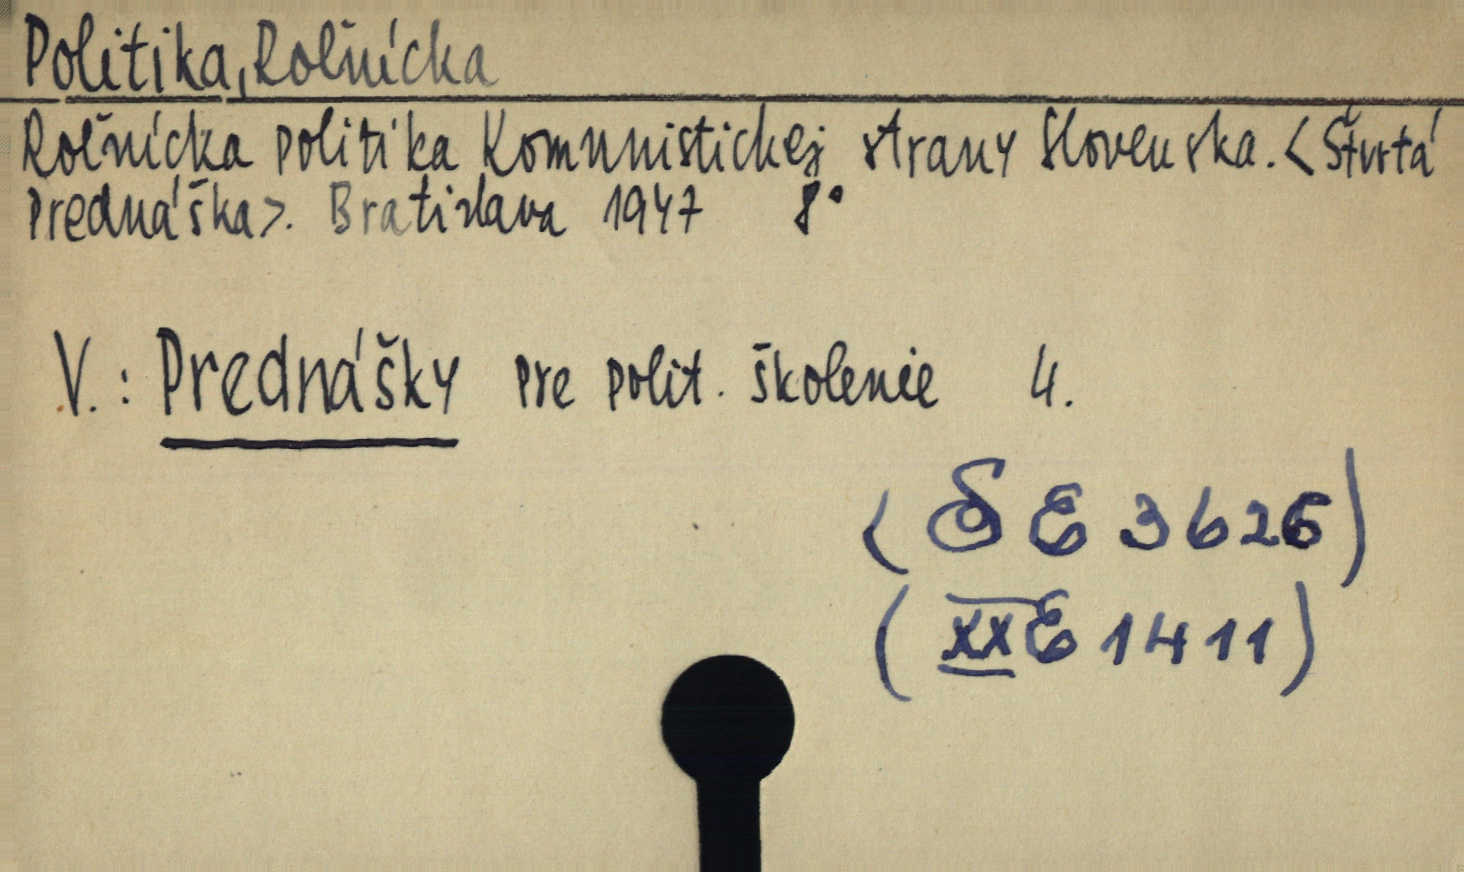 Politika, Roľnícka
Roľnícka politika Komunistickej strany Slovenska. <Štvrtá
prednáška>. Bratislava 1947 8°
V.: Prednášky pre polit. školenie 4.
(SE 3626)
(XX E 1411)